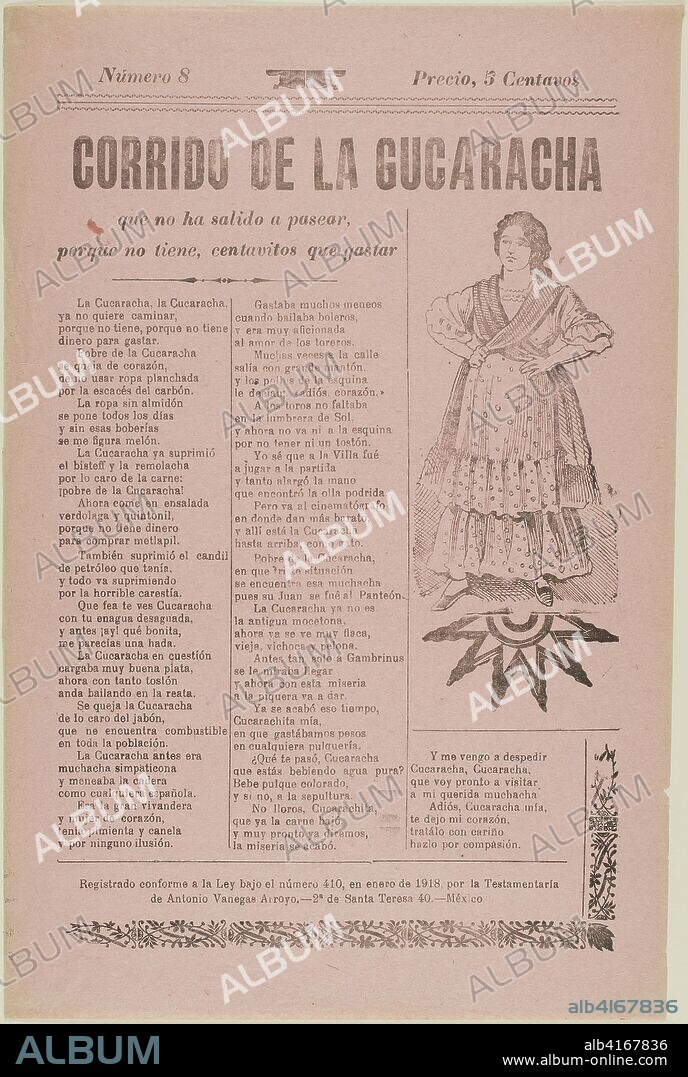 Número 8
Precio, 5 Centavos
CORRIDO DE LA CUCARACHA
que no ha salido a pasear,
porque no tiene, centavitos que gastar
La Cucaracha, la Cucaracha,
ya no quiere caminar,
porque no tiene, porque no tiene
dinero para gastar.
Pobre de la Cucaracha
se queja de corazón,
de no usar ropa planchada
por la escacés del carbón.
La ropa sin almidón
se pone todos los días
y sin esas boberías
se me figura melón.
La Cucaracha ya suprimió
el bisteff y la remolacha
por lo caro de la carne:
¡pobre de la Cucaracha!
Ahora come en ensalada
verdolaga y quintonil,
porque no tiene dinero
para comprar metlapil.
También suprimió el candil
de petróleo que tenía,
y todo va suprimiendo
por la horrible carestía.
Que fea te ves Cucaracha
con tu enagua desaguada,
y antes ¡ay! qué bonita,
me parecías una hada.
La Cucaracha en cuestión
cargaba muy buena plata,
ahora con tanto tostón
anda bailando en la reata.
Se queja la Cucaracha
de lo caro del jabón,
que no encuentra combustible
en toda la población.
La Cucaracha antes era
muchacha simpaticona
y meneaba la cadera
como cualquiera española.
Era gran vivandera
y de corazón,
tenía pimienta y canela
y por ninguno ilusión.
Gastaba muchos meneos
cuando bailaba boleros,
y era muy aficionada
al amor de los toreros.
Muchas veces a la calle
salía con gran mantón.
y los pollos de la esquina
le decían: «adiós, corazón.»
A los toros no faltaba
en la lumbrera de Sol,
y ahora no va ni a la esquina
por no tener ni un tostón.
Yo sé que a la Villa fué
a jugar a la partida
y tanto alargó la mano
que encontró la olla podrida
Pero va al cinematógrafo
en donde dan más barato,
y allí está la Cucaracha
hasta arriba, como gato.
Pobre de la Cucaracha,
en que triste situación
se encuentra esa muchacha
pues su Juan se fué al Panteón.
La Cucaracha ya no es
la antigua mocetona,
ahora va se ve muy flaca,
vieja, vichoca y pelona.
Antes tan solo a Gambrinus
se le miraba llegar
y ahora con esta miseria
a la piquera va a dar.
Ya se acabó ese tiempo,
Cucarachita mía,
en que gastábamos pesos
en cualquiera pulquería.
¿Qué te pasó, Cucaracha
que estás bebiendo agua pura?
Bebe pulque colorado,
y si no, a la sepultura.
No llores, Cucarachita,
que ya la carne bajó
y muy pronto ya diremos,
la miseria se acabó.
Y me vengo a despedir
Cucaracha, Cucaracha,
que voy pronto a visitar
a mi querida muchacha
Adiós, Cucaracha mía,
te dejo mi corazón,
tratálo con cariño
hazlo por compasión.
Registrado conforme a la Ley bajo el número 410, en enero de 1918, por la Testamentaría
de Antonio Vanegas Arroyo,—2ª de Santa Teresa 40.—México
ALBUM
alb4167836
ALBUM
alb4167836
www.album-online.com